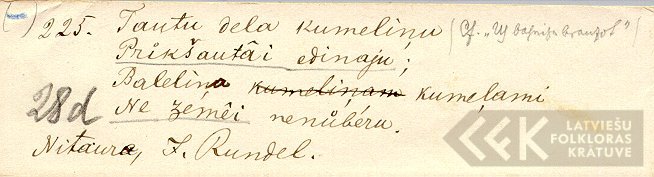 225. Tautu dela kumeliņu (Cf. „Uz baznicu braucot")
Prikšautâi edinaju;
Baleliņa kumeliņam kumeļami
28d Ne zemêi nenûbéru.
Nitaure, J. Rundel.
LATVIEŠU
FOLKLORAS
KRĀTUVE